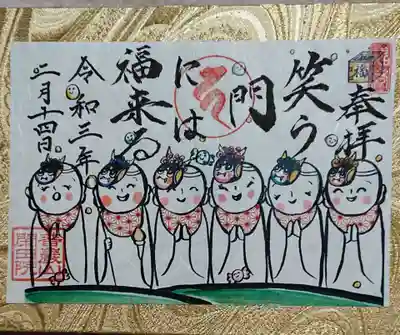 奉拝
笑う
門
には
福来る
令和三年
二月十四日